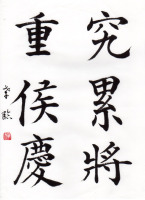 究累將
重侯慶